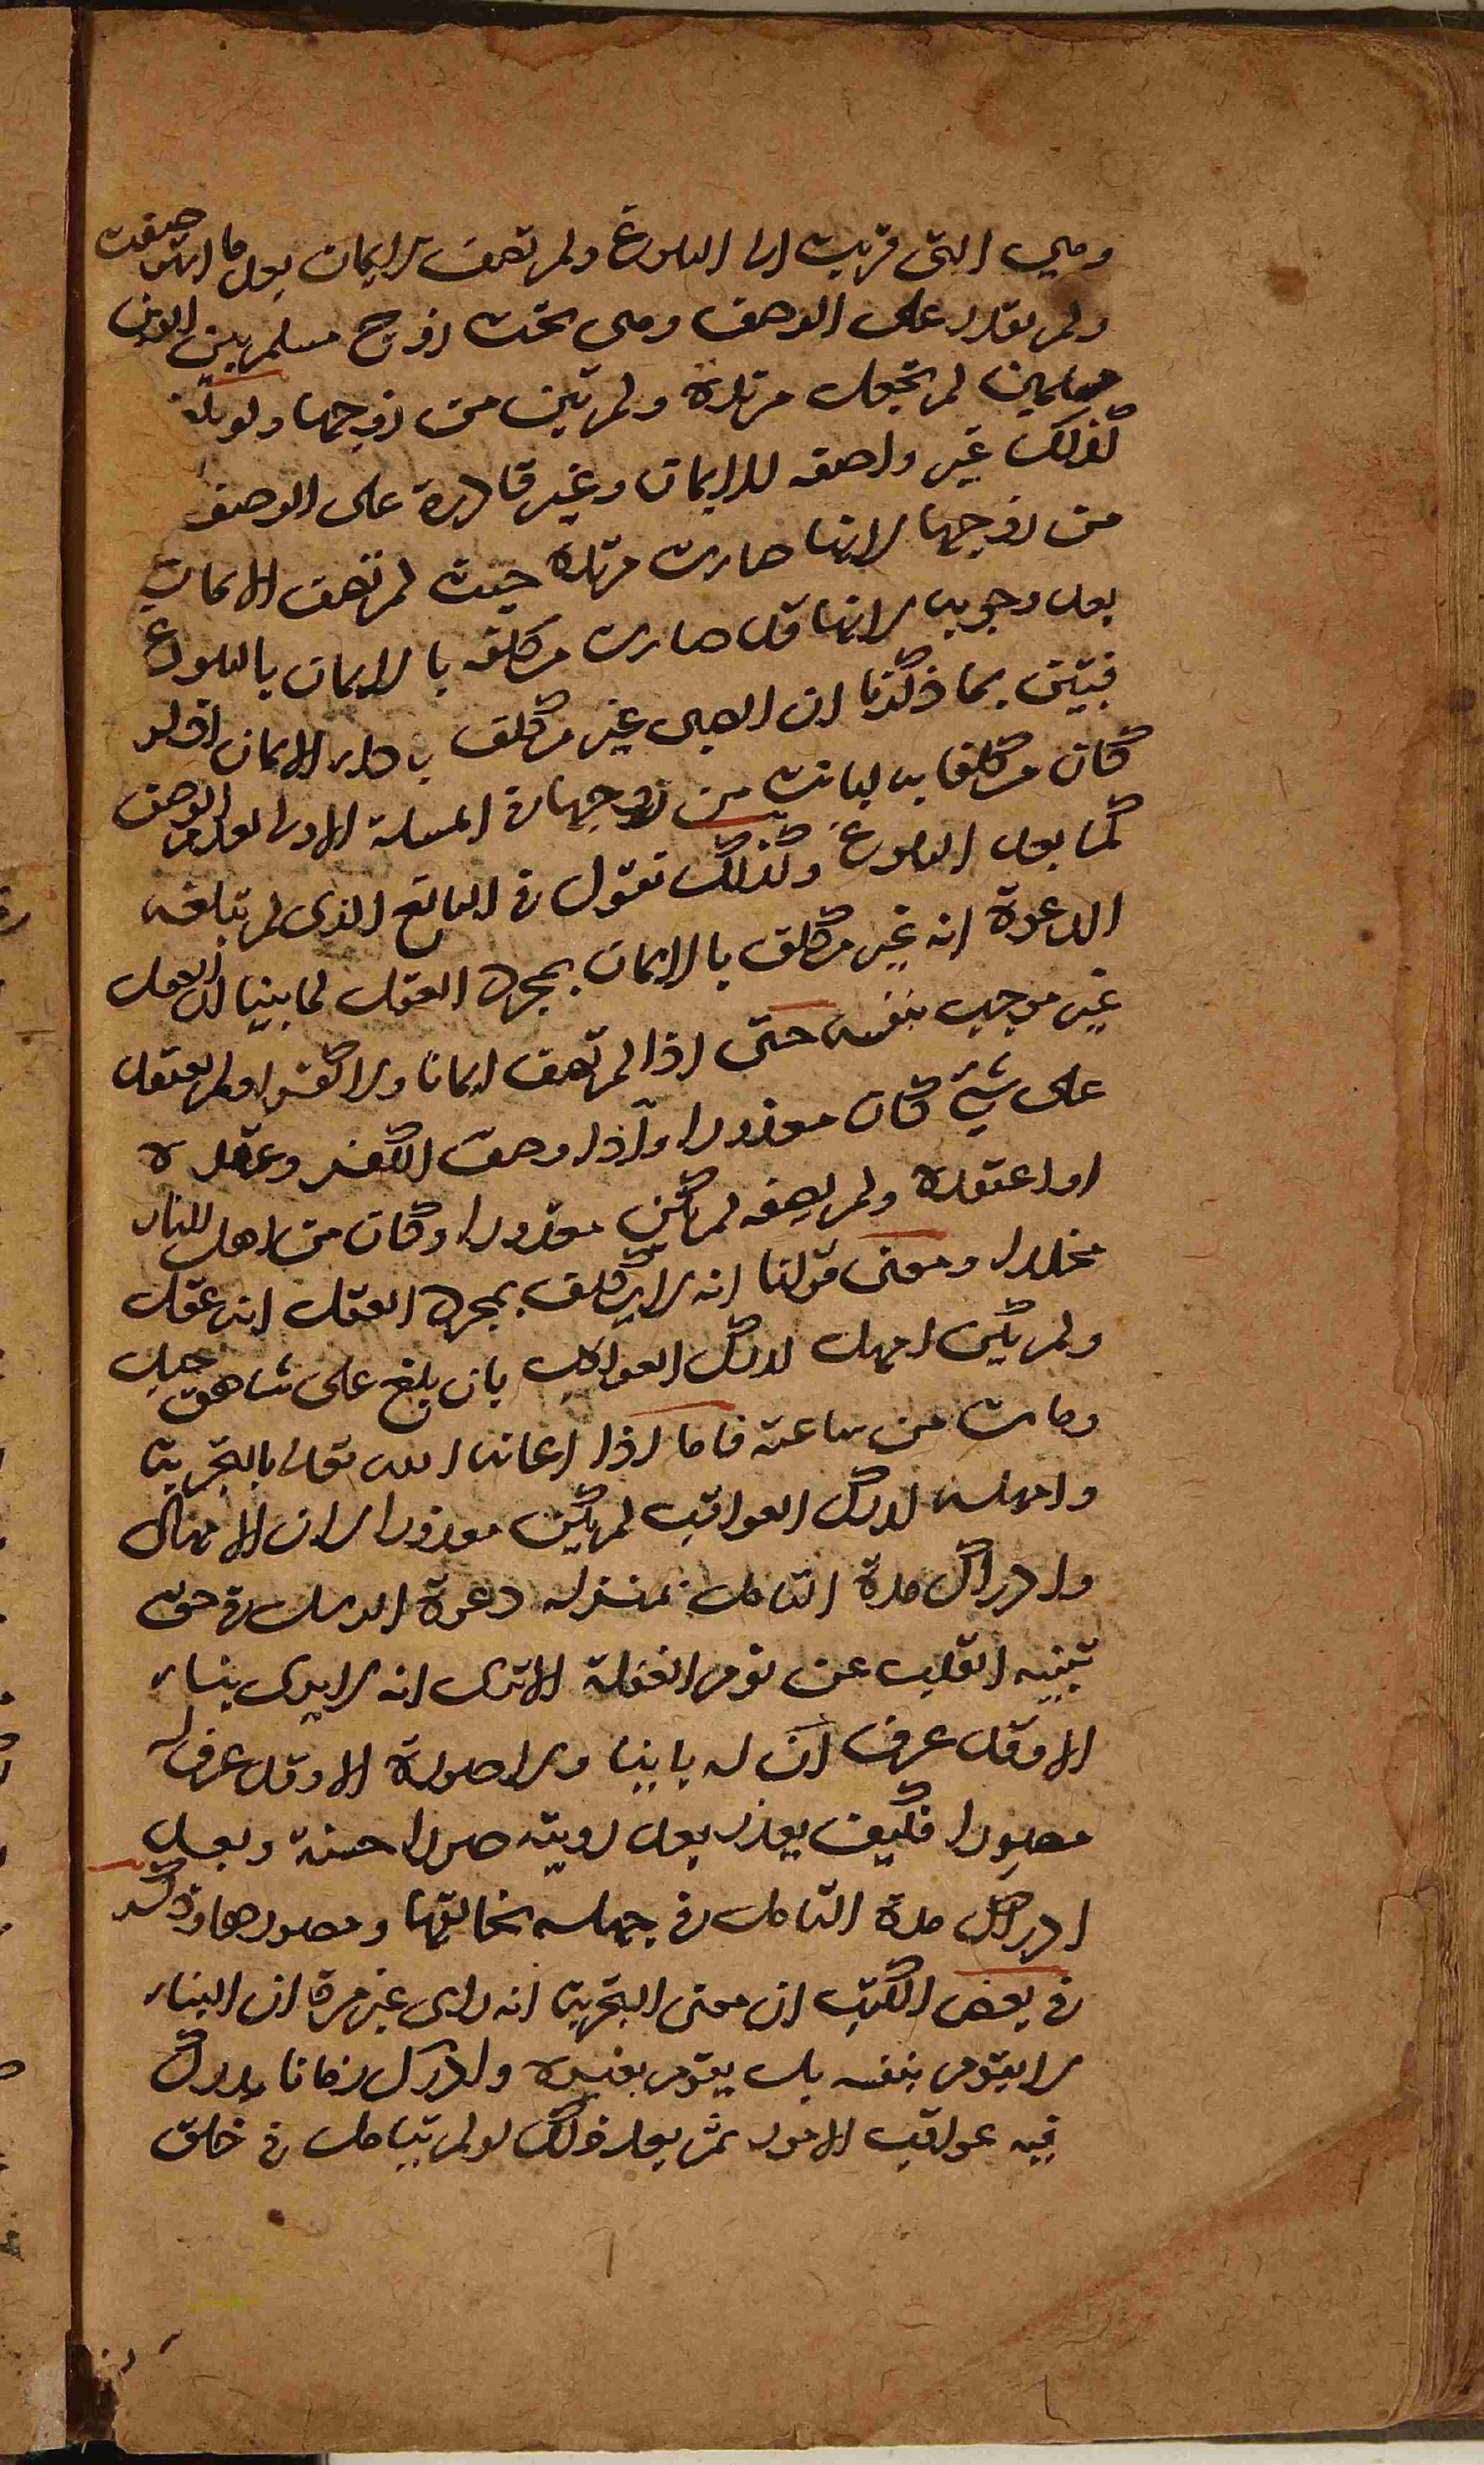 وهي التي قربت الى البلوغ ولم تصف الايمان بعد ما استوصفت
ولم تقدر على الوصف وهي تحت زوج مسلم بين ابوين
مسلمين لم تجعل مرتدة ولم تبن من زوجها ولو بلغت
كذلك غير واصفة للايمان وغير قادرة على الوصف
من زوجها لانها صارت مرتدة حيث لم تصف الايمان
بعد وجوبه لانها قد صارت مكلفة بالايمان بالبلوغ
فتبين بما ذكرنا ان الصبي غير مكلف باداء الايمان اذ لو
كان مكلفا به لبانت من زوجها في المسئلة الاولى لعدم الوصف
كما بعد البلوغ وكذلك نقول في البالغ الذي لم تبلغه
الدعوة انه غير مكلف بالايمان بمجرد العقل لما بينا ان العقل
غير موجب بنفسه حتى اذا لم تصف ايمانا ولا كفرا ولم يعتقد
على شيئ كان معذورا واذا وصف الكفر وعقده
او اعتقده ولم يصفه لم يكن معذورا وكان من اهل النار
مخلدا ومعنى قولنا انه لا يكلف بمجرد العقل انه عقل
ولم يكن امهل لدرك العواقب بان بلغ على شاهق جبل
ومات من ساعته فاما اذا اعانه الله تعالى بالتجربة
وامهله لدرك العواقب لم يكن معذورا لان الامهال
وادراك مدة التامل بمنزلة دعوة الرسل في حق
تنبيه القلب عن نوم الغفلة الا ترى انه لا يرى بناء
الا وقد عرف ان له بانيا ولا صورة الا وقد عرف له
مصورا فكيف يعذر بعد رويته صورا حسنة وبعد
ادراك مدة التامل في جهله بخالقها ومصورها وذكر
في بعض الكتب ان معنى التجربة انه راى غير مرة ان البناء
لا يقوم بنفسه بل يقوم بغيره وادرك زمانا يدرك
فيه عواقب الامور ثم بعد ذلك لو لم يتامل في خلق